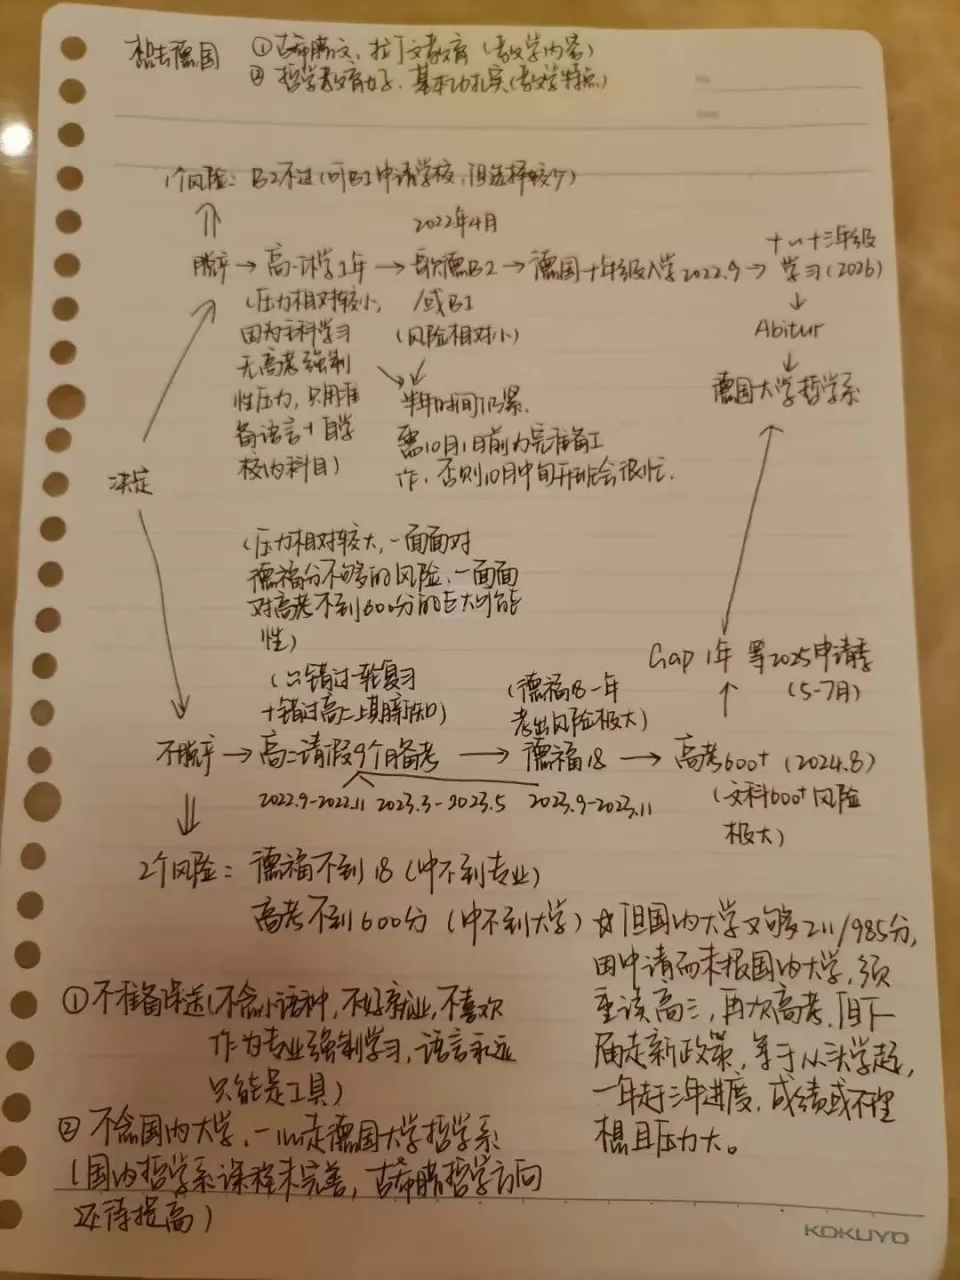 想去德国 ①古希腊文、拉丁文教育（教学内容）
②哲学教育力子、基本功扎实（教学特点）
1个风险：B2不过（可B1申请学校，但选择较少）
2022年4月
脱产→高一休学1年→歌德B2→德国十年级入学2022.9→
十一~十三年级
学习（2026）
（压力相对较小，
因为主科学习
无高考强制
性压力，只用准
备语言+自学
校内科目）
/或B1
（风险相对小）
半年时间仍紧，
需10月1日前为完准备工
作，否则10月中旬开班会很忙.
Abitur
德国大学哲学系
决定
（压力相对较大，一面面对
德福分不够的风险，一面面
对高考不到600分的巨大可能
性）
（错过一轮复习
+错过高二上期新知）
（德福18一年
考出风险极大）
Gap 1年 等2025申请季
（5-7月）
不脱产→高二请假9个月备考→德福18→高考600+（2024.8）
2022.9-2022.11 2023.3-2023.5 2023.9-2023.11
（文科600+风险
极大）
2个风险：德福不到18（冲不到专业）
高考不到600分（冲不到大学）
☆但国内大学又够211/985分，
因申请而未报国内大学，须
重读高三，再次高考，且下
届走新政策，等于从头学起，
一年赶三年进度，成绩或不理
想且压力大。
①不准备保送（不念小语种，不好就业，不喜欢
作为专业强制学习，语言永远
只能是工具）
②不念国内大学，一心走德国大学哲学系
（国内哲学系课程未完善，古希腊哲学方向
还待提高）
KOKUYO